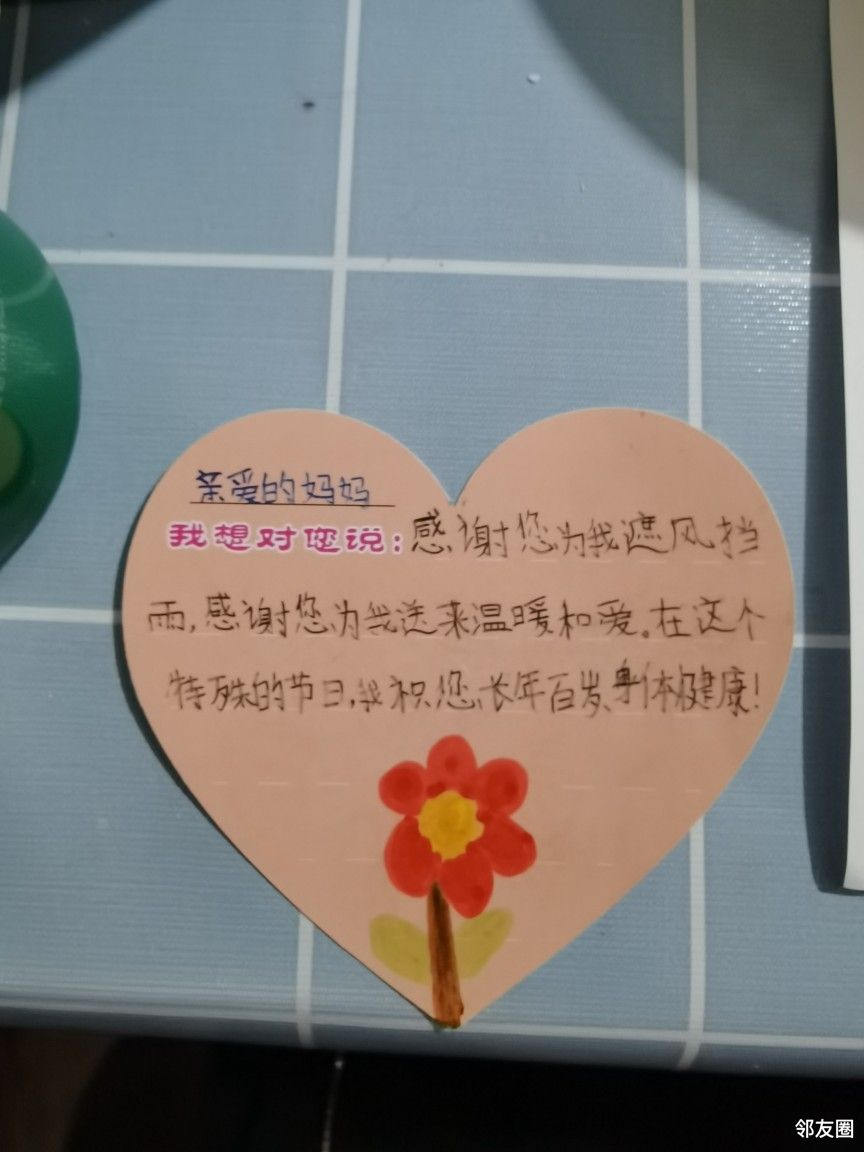 亲爱的妈妈
我想对您说:感谢您为我遮风挡
雨,感谢您为我送来温暖和爱。在这个
特殊的节日,我祝您长年百岁、身体健康!
邻友圈